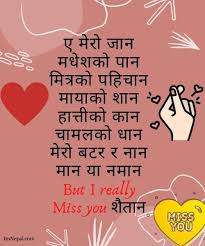 ए मेरो जान
मधेशको पान
मित्रको पहिचान
मायाको शान
हात्तीको कान
चामलको धान
मेरो बटर र नान
मान या नमान
But I really
Miss you शैतान
MISS
YOU
ImNepal.com